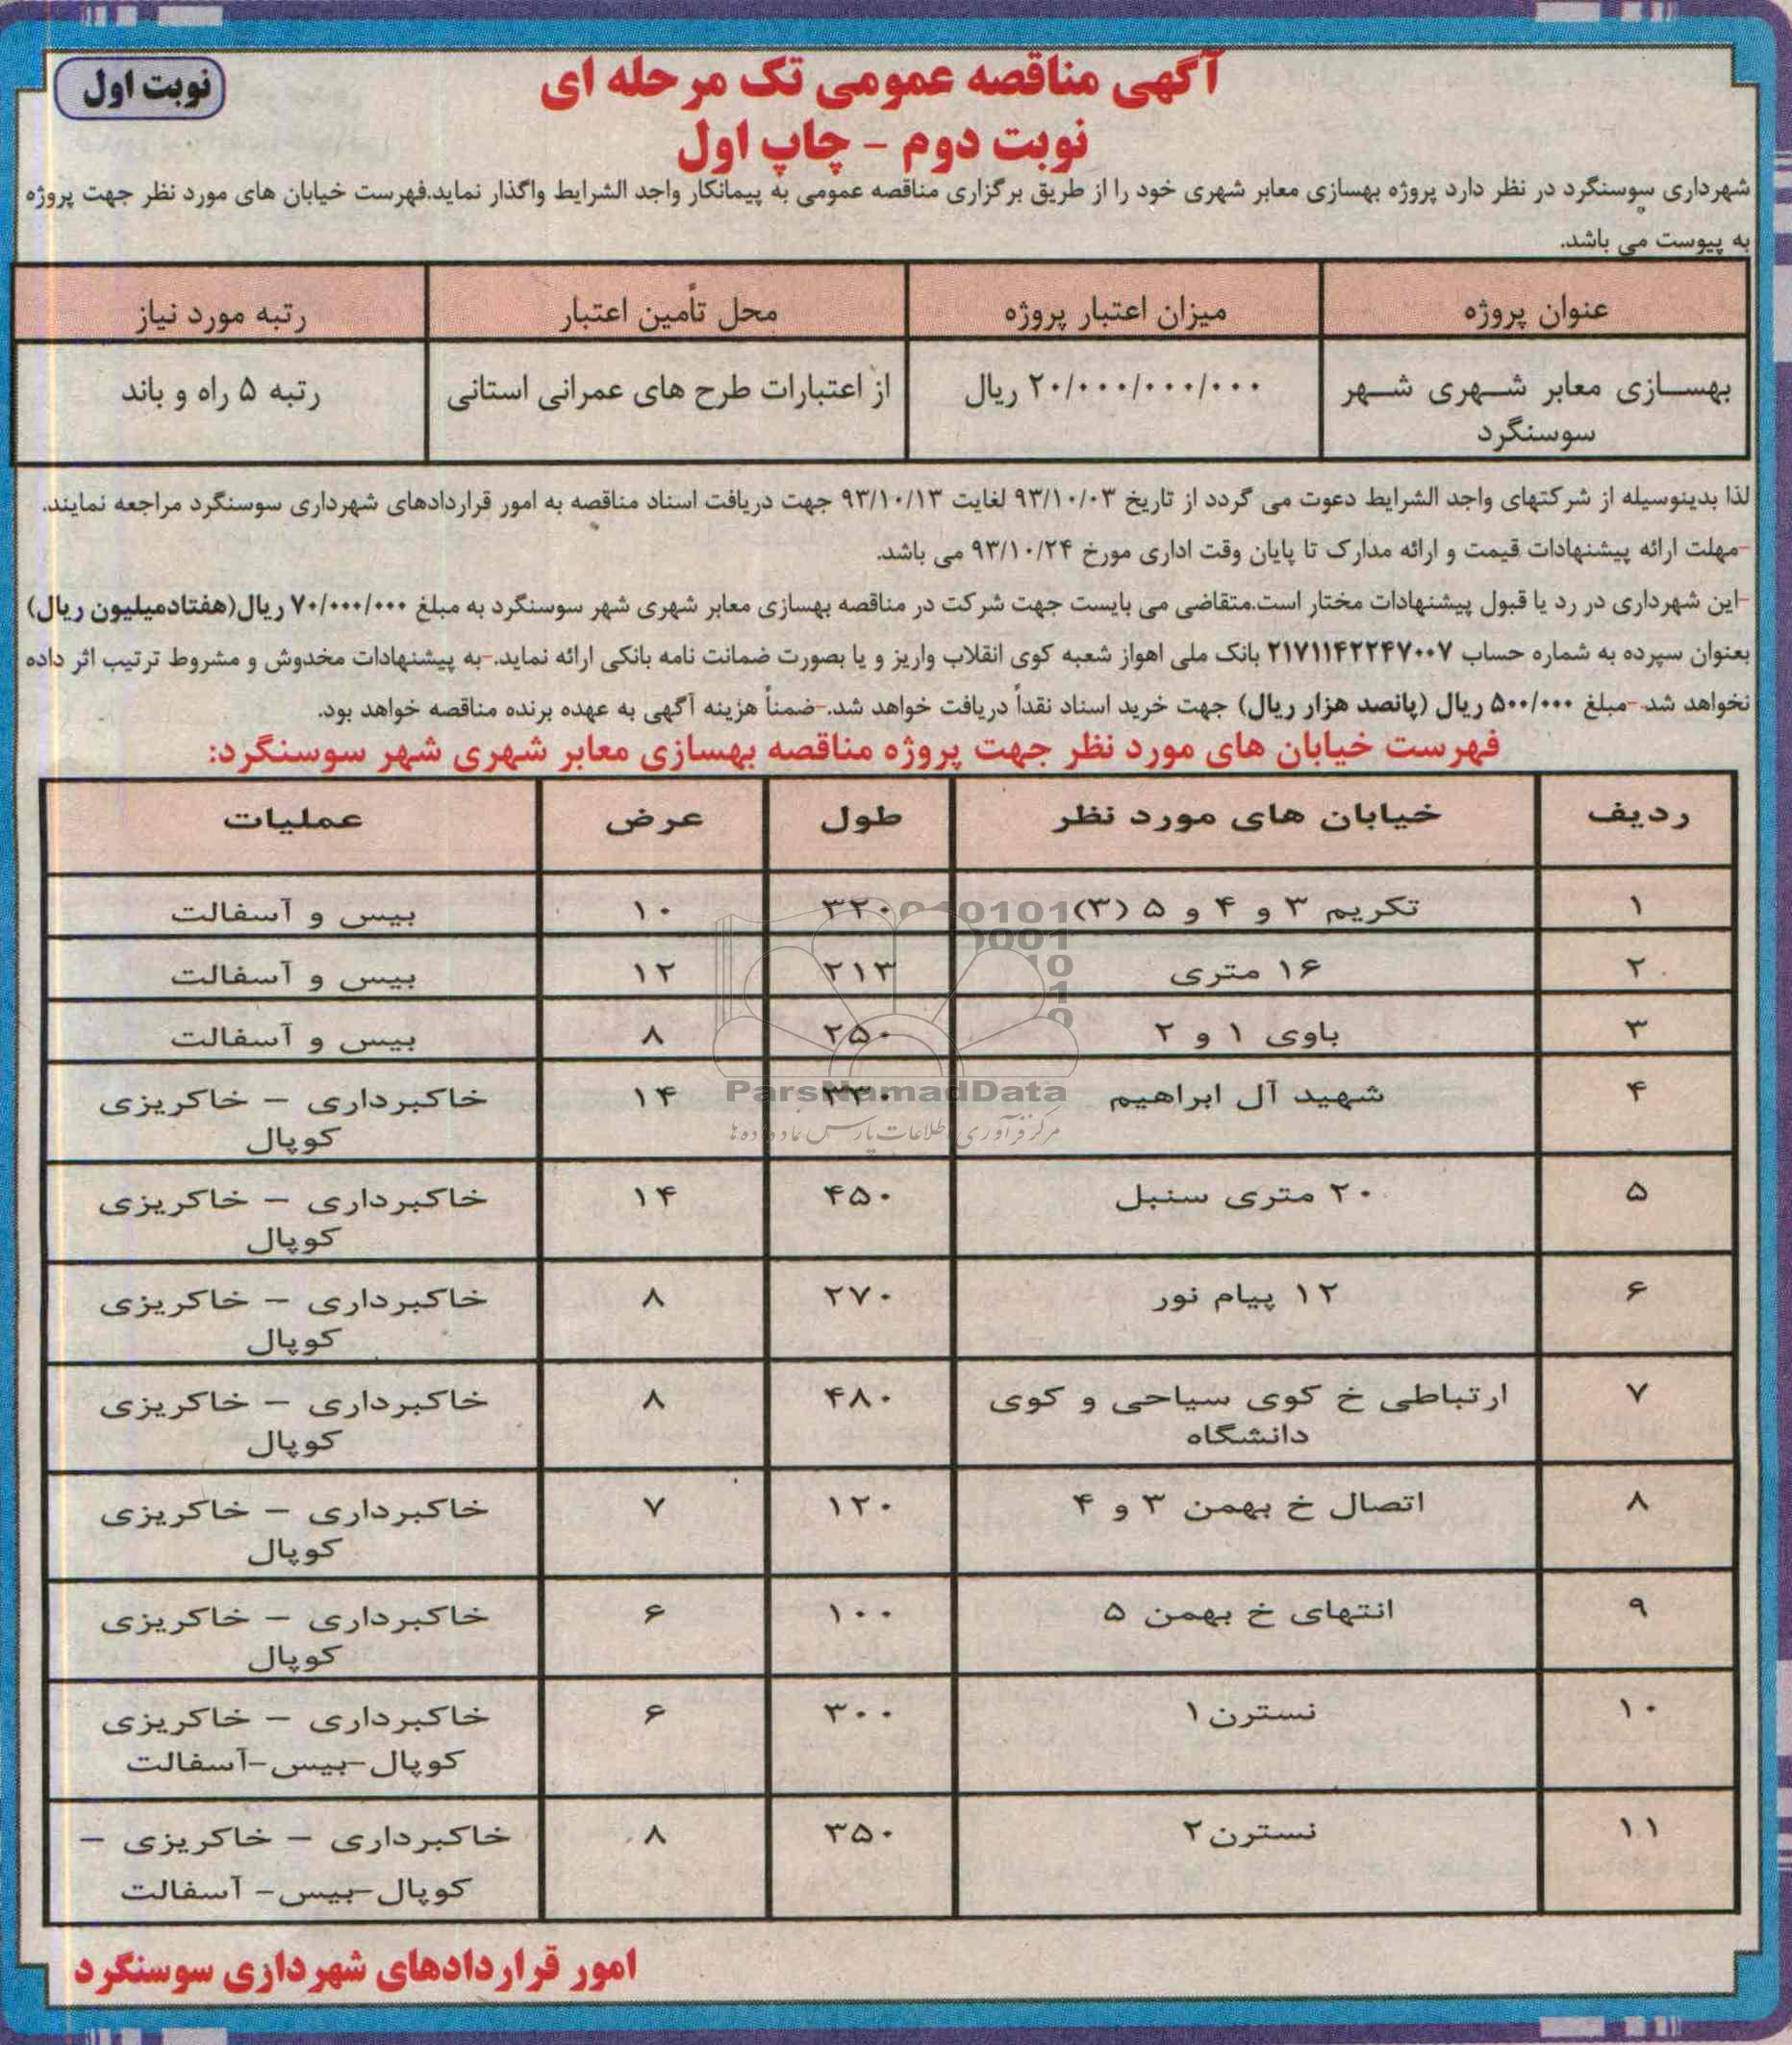 نوبت اول
آگهی مناقصه عمومی تک مرحله ای
نوبت دوم - چاپ اول
شهرداری سوسنگرد در نظر دارد پروژه بهسازی معابر شهری خود را از طریق برگزاری مناقصه عمومی به پیمانکار واجد الشرایط واگذار نماید.فهرست خیابان های مورد نظر جهت پروژه
به پیوست می باشد.
عنوان پروژه میزان اعتبار پروژه محل تأمین اعتبار رتبه مورد نیاز
بهسازی معابر شهری شهر ۲۰/۰۰۰/۰۰۰/۰۰۰ ریال از اعتبارات طرح های عمرانی استانی رتبه ۵ راه و باند
سوسنگرد
لذا بدینوسیله از شرکتهای واجد الشرایط دعوت می گردد از تاریخ ۹۳/۱۰/۰۳ لغایت ۹۳/۱۰/۱۳ جهت دریافت اسناد مناقصه به امور قراردادهای شهرداری سوسنگرد مراجعه نمایند.
-مهلت ارائه پیشنهادات قیمت و ارائه مدارک تا پایان وقت اداری مورخ ۹۳/۱۰/۲۴ می باشد.
-این شهرداری در رد یا قبول پیشنهادات مختار است.متقاضی می بایست جهت شرکت در مناقصه بهسازی معابر شهری شهر سوسنگرد به مبلغ ۷۰/۰۰۰/۰۰۰ ریال(هفتادمیلیون ریال)
بعنوان سپرده به شماره حساب ۲۱۷۱۱۴۲۲۴۷۰۰۷ بانک ملی اهواز شعبه کوی انقلاب واریز و یا بصورت ضمانت نامه بانکی ارائه نماید.-به پیشنهادات مخدوش و مشروط ترتیب اثر داده
نخواهد شد.-مبلغ ۵۰۰/۰۰۰ ریال (پانصد هزار ریال) جهت خرید اسناد نقداً دریافت خواهد شد.-ضمناً هزینه آگهی به عهده برنده مناقصه خواهد بود.
فهرست خیابان های مورد نظر جهت پروژه مناقصه بهسازی معابر شهری شهر سوسنگرد:
ردیف خیابان های مورد نظر طول عرض عملیات
۱ تکریم ۳ و ۴ و ۵ (۳) ۳۲۰ ۱۰ بیس و آسفالت
۲ ۱۶ متری ۲۱۳ ۱۲ بیس و آسفالت
۳ باوی ۱ و ۲ ۲۵۰ ۸ بیس و آسفالت
۴ شهید آل ابراهیم ۱۴ خاکبرداری - خاکریزی
کوپال
۵ ۲۰ متری سنبل ۴۵۰ ۱۴ خاکبرداری - خاکریزی
کوپال
۶ ۱۲ پیام نور ۲۷۰ ۸ خاکبرداری - خاکریزی
کوپال
۷ ارتباطی خ کوی سیاحی و کوی ۴۸۰ ۸ خاکبرداری - خاکریزی
دانشگاه کوپال
۸ اتصال خ بهمن ۳ و ۴ ۱۲۰ ۷ خاکبرداری - خاکریزی
کوپال
۹ انتهای خ بهمن ۵ ۱۰۰ ۶ خاکبرداری - خاکریزی
کوپال
۱۰ نسترن۱ ۳۰۰ ۶ خاکبرداری - خاکریزی
کوپال-بیس-آسفالت
۱۱ نسترن۲ ۳۵۰ ۸ خاکبرداری - خاکریزی -
کوپال-بیس- آسفالت
ParsNamadData
مرکز فرآوری اطلاعات پارس نماد داده ها
امور قراردادهای شهرداری سوسنگرد